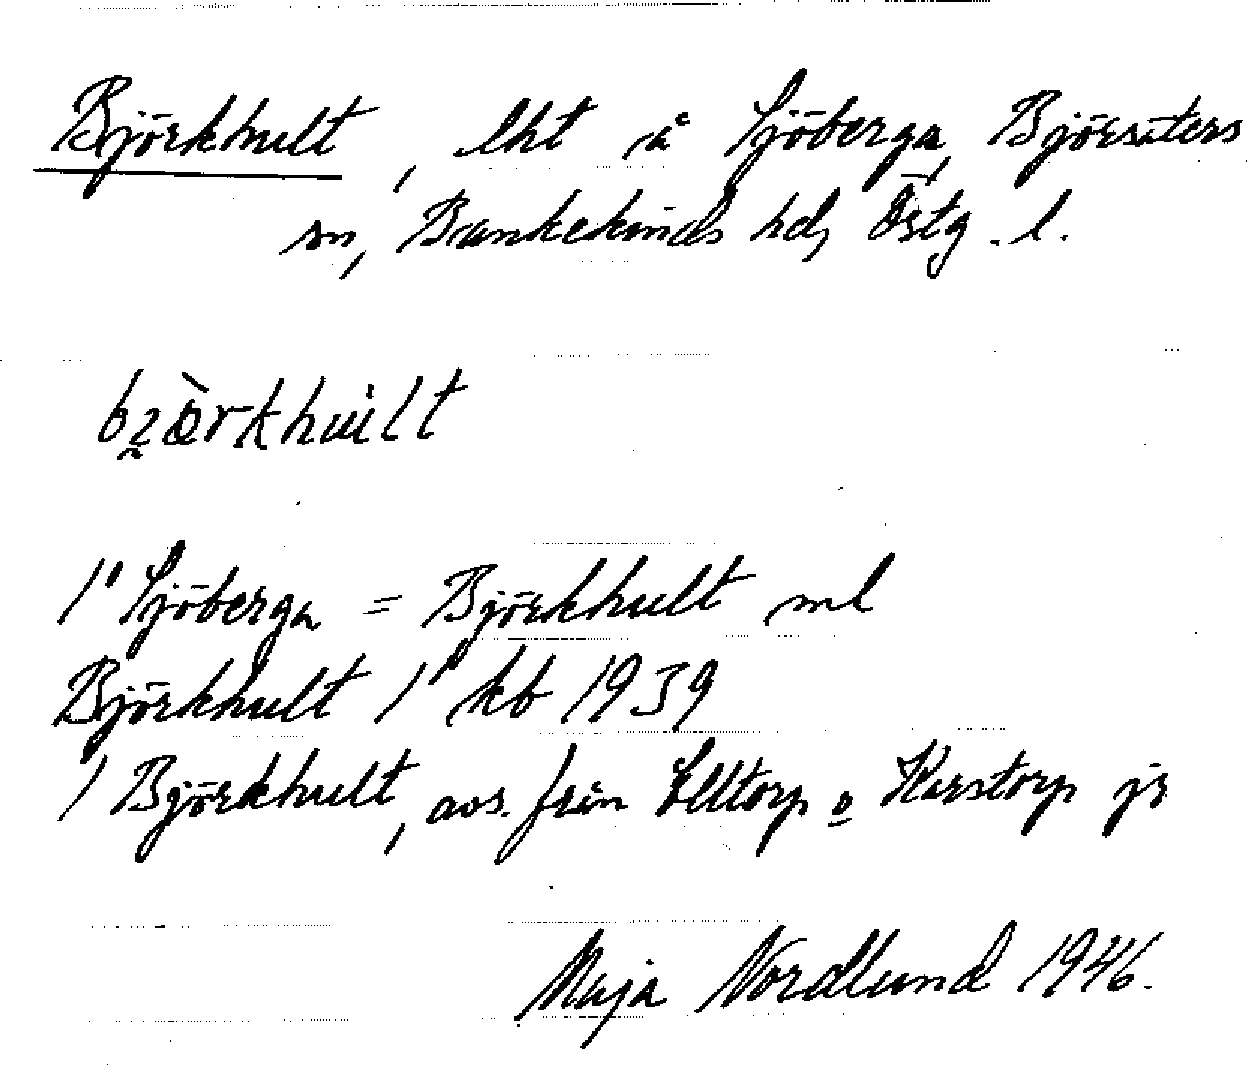 Björkhult, lht å Sjöberga, Björsäters
sn, Bankekinds hd, Östg. l.
bjö̀rkhult
1" Sjöberga = Björkhult ml
Björkhult 1" kb 1939
1 Björkhult, avs. från Elltorp o Karstorp jr
Maja Nordlund 1946.